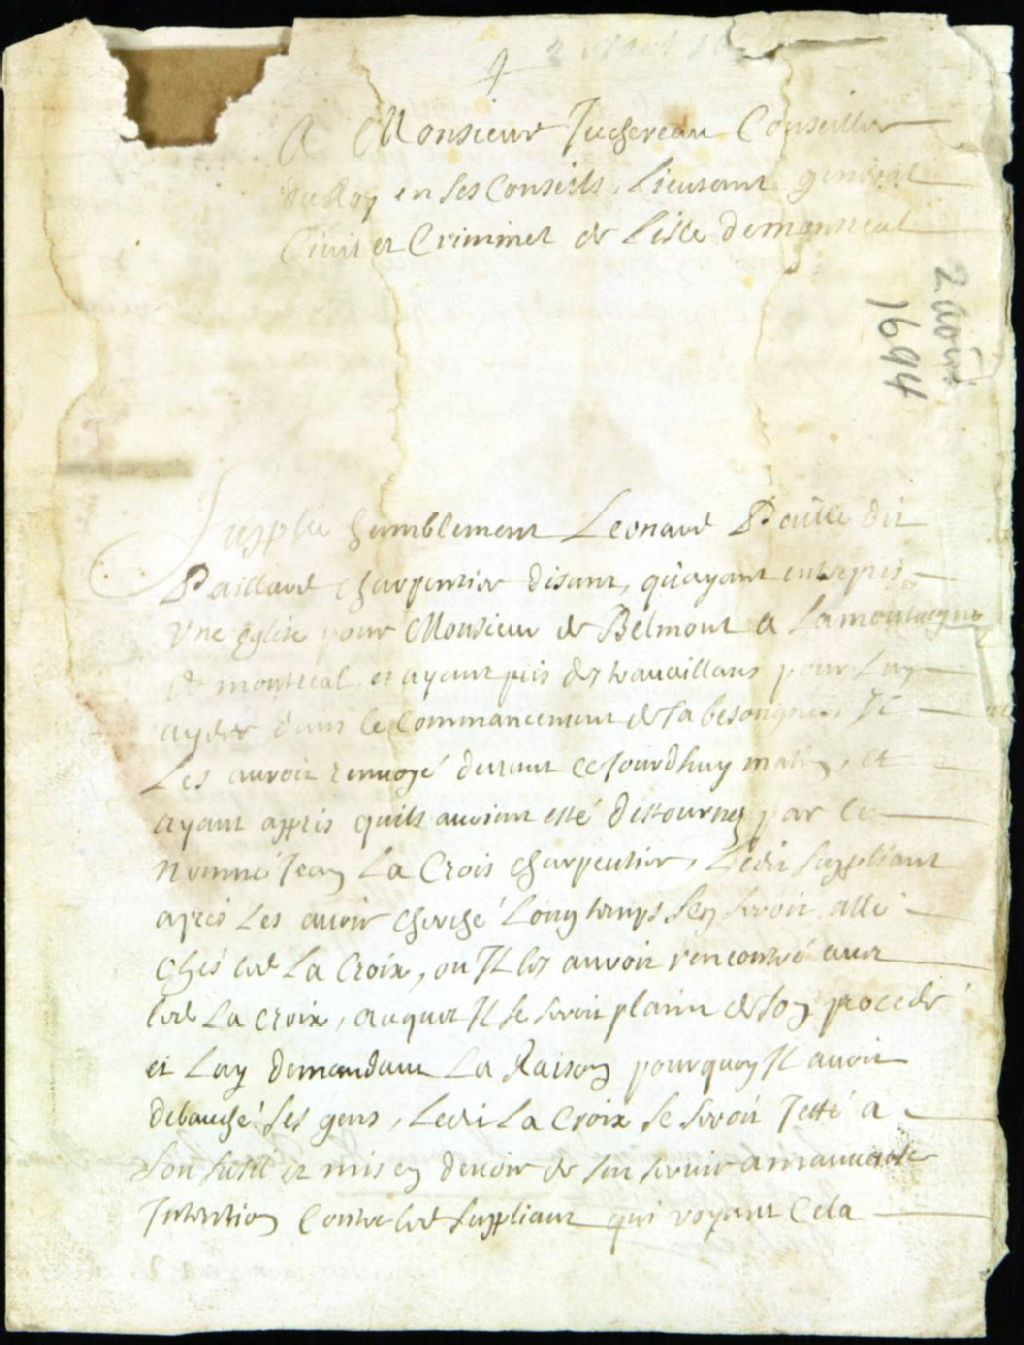 2 Aout 16
A Monsieur Juchereau Conseiller
du Roy en ses Conseils, Lieutenant general
Civil et Criminel de Lisle de montreal
2 août
1694
Supplie humblement Leonard Paillé dit
Paillard charpentier disant, qu'ayant entrepris
Une Eglise pour Monsieur de Belmont a Lamontaigne
de montreal, et ayant pris des travaillans pour Luy
ayder dans le Commancement de sa besongne, Il
Les auroit renvoyé durant ce Jourdhuy matin, et
ayant appris quils avoient esté destournez par le
nommé Jean La Crois charpentier, Ledit suppliant
apres Les avoir cherché Longtemps sen seroit allé
chés led La Croix, ou Il les auroit rencontré avec
led La croix, auquel Il se seroit plaint de son procedé
et Luy demandant La Raison pourquoy Il avoit
debauché ses gens, Ledit La Croix se seroit Jetté a
son fusil et mis en devoir de sen servir a mauvaise
Intention Contre led suppliant qui voyant Cela